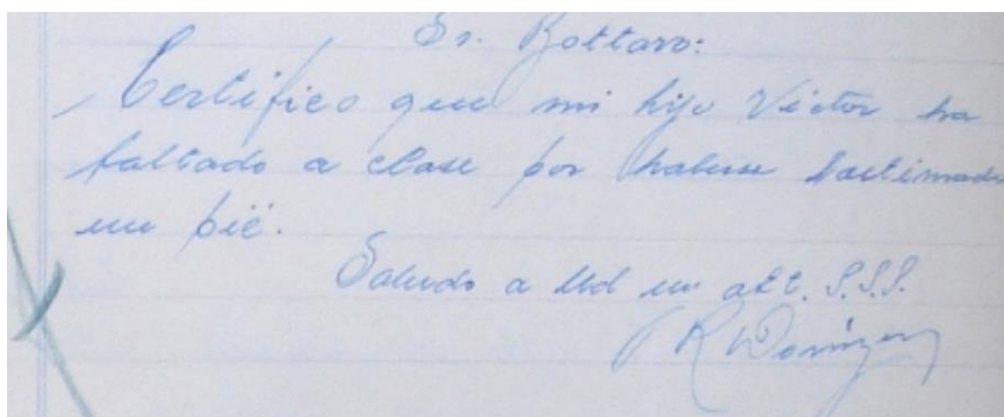 Sr. Bottaro:
Certifico que mi hijo Victor ha
faltado a clase por haberse lastimado
un pié.
Saludo a Ud un att. S.S.S.